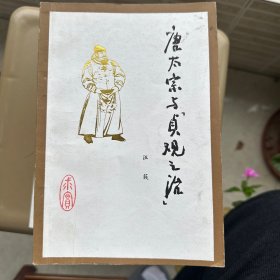 唐太宗与「贞观之治」
求实